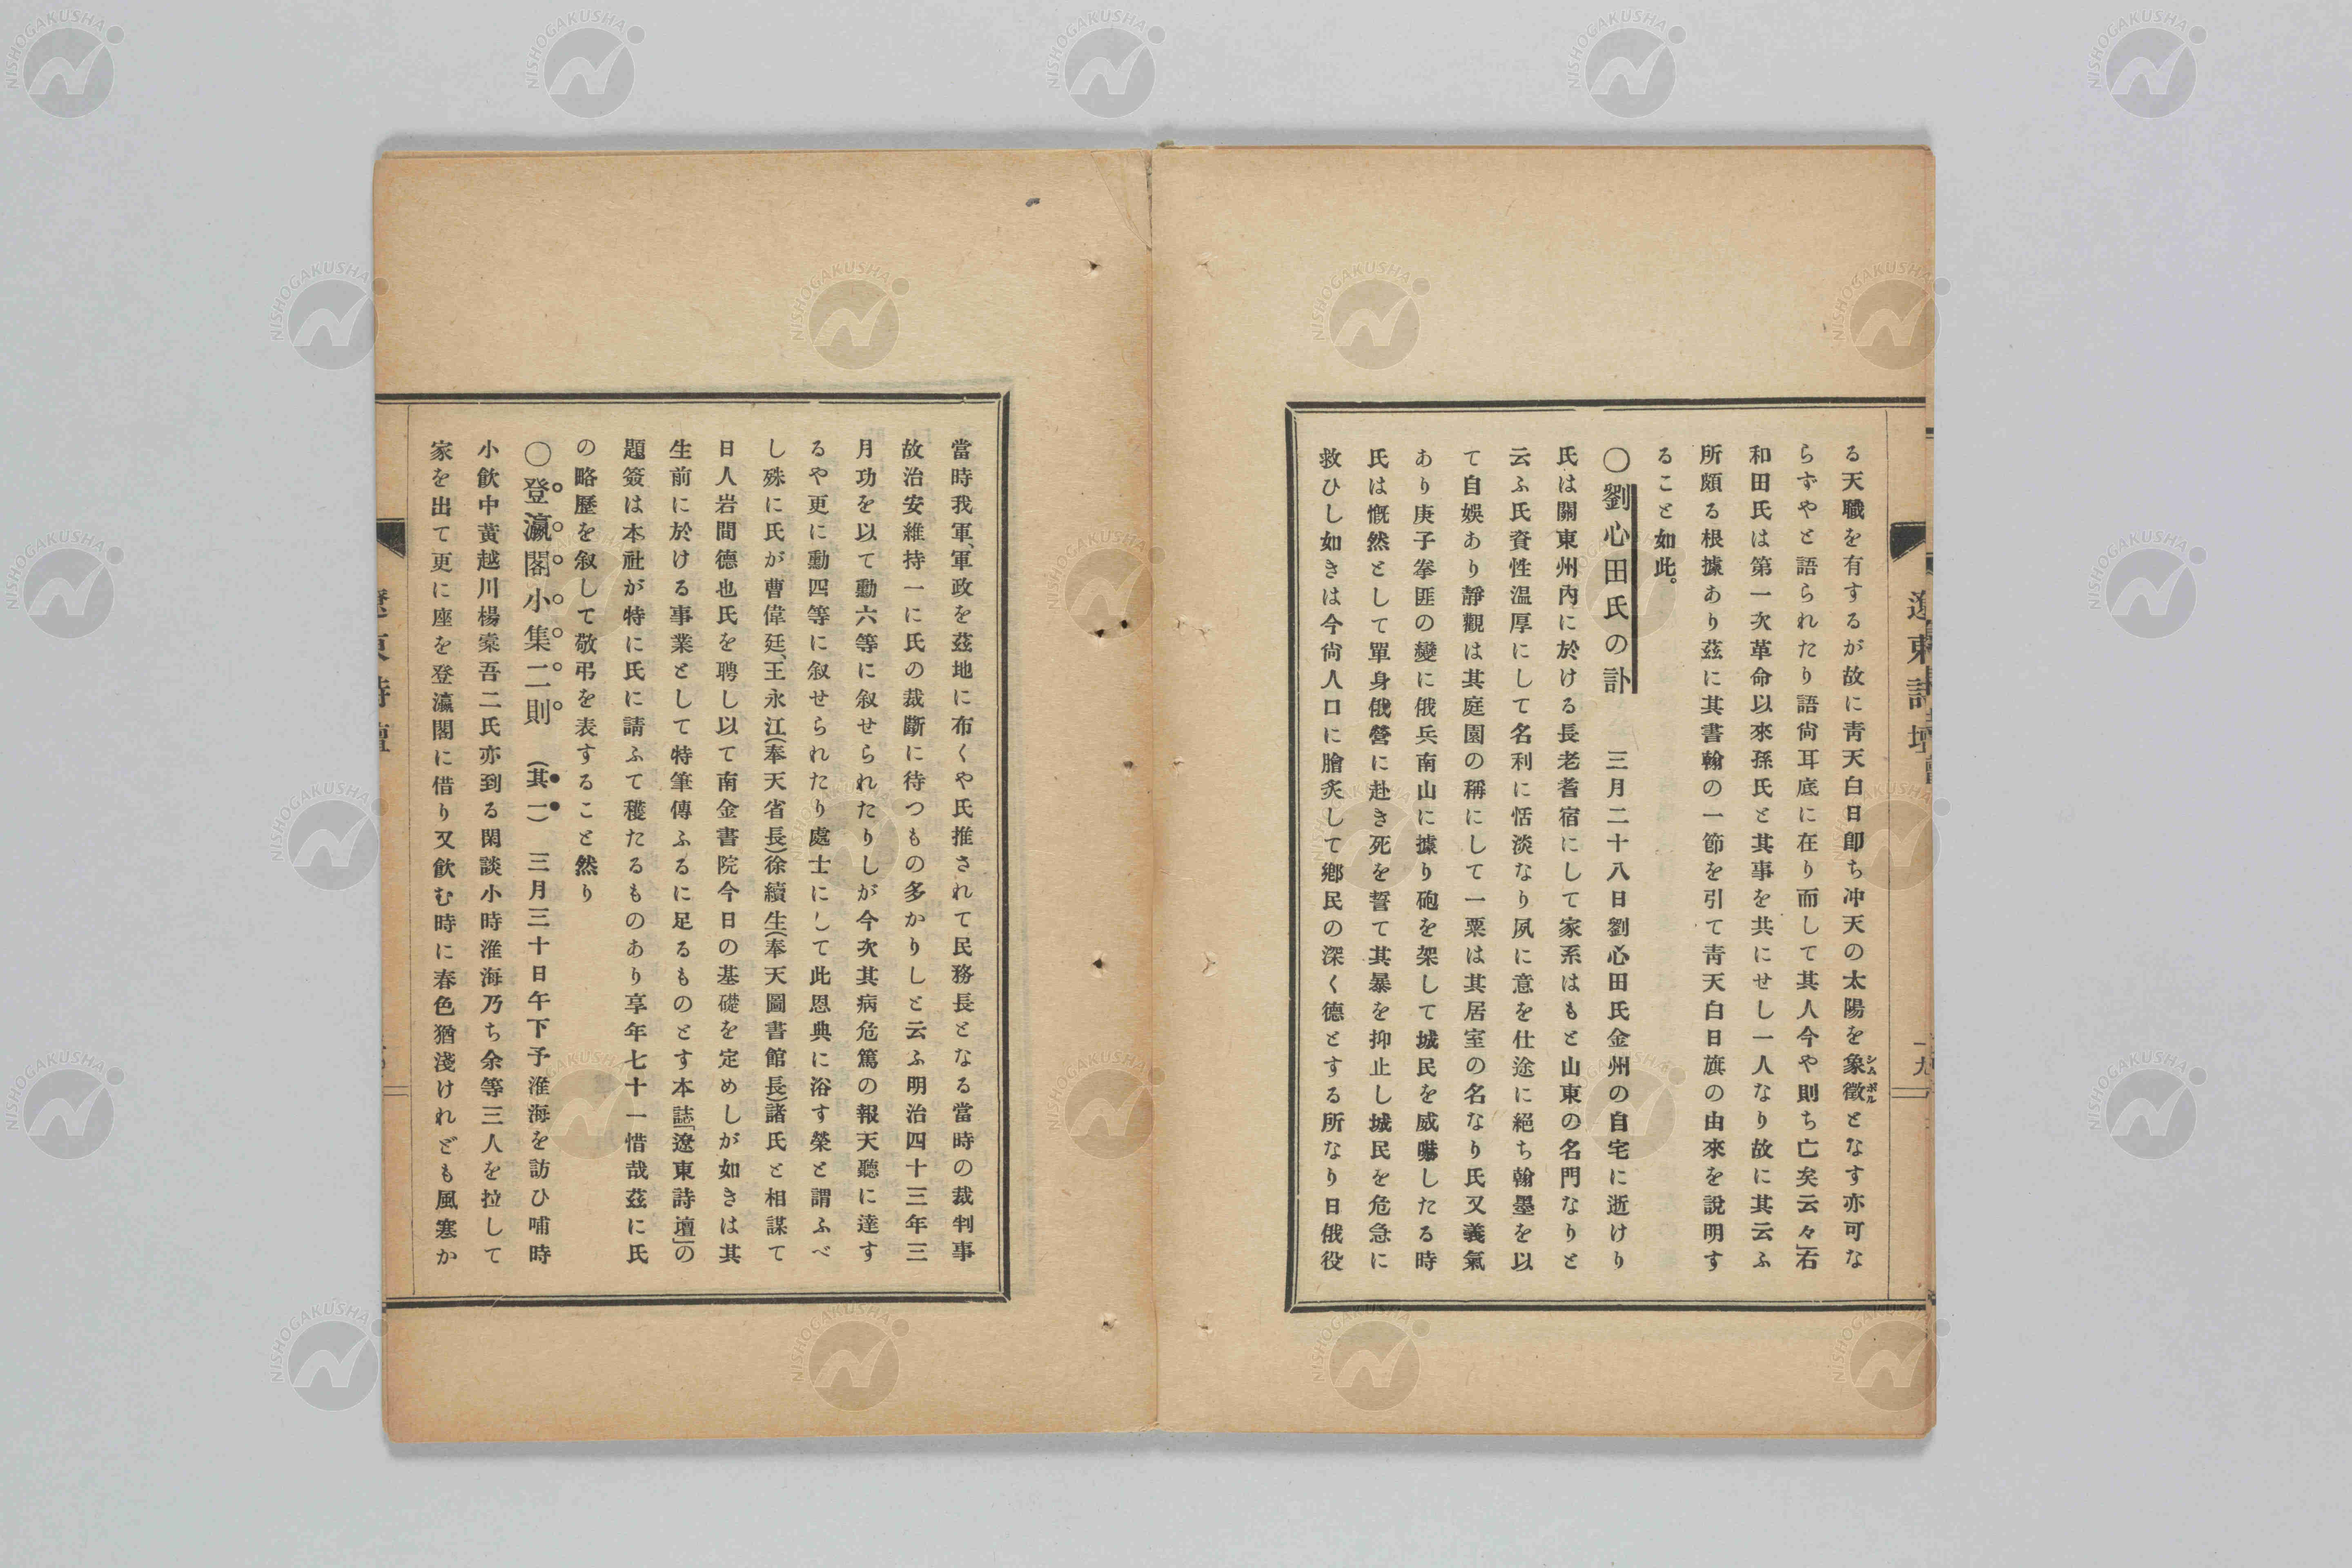 遼東詩壇
一九
る天職を有するが故に靑天白日卽ち冲天の太陽を象徵となす亦可な
シムボル
らずやと語られたり語尙耳底に在り而して其人今や則ち亡矣云々」右
和田氏は第一次革命以來孫氏と其事を共にせし一人なり故に其云ふ
所頗る根據あり玆に其書翰の一節を引て靑天白日旗の由來を說明す
ること如此。
〇劉心田氏の訃　三月二十八日劉心田氏金州の自宅に逝けり
氏は關東州內に於ける長老耆宿にして家系はもと山東の名門なりと
云ふ氏資性温厚にして名利に恬淡なり夙に意を仕途に絕ち翰墨を以
て自娛あり靜觀は其庭園の稱にして一粟は其居室の名なり氏又義氣
あり庚子拳匪の變に俄兵南山に據り砲を架して城民を威嚇したる時
氏は慨然として單身俄營に赴き死を誓て其暴を抑止し城民を危急に
救ひし如きは今尙人口に膾炙して鄕民の深く德とする所なり日俄役
當時我軍、軍政を玆地に布くや氏推されて民務長となる當時の裁判事
故治安維持一に氏の裁斷に待つもの多かりしと云ふ明治四十三年三
月功を以て勳六等に叙せられたりしが今次其病危篤の報天聽に達す
るや更に勳四等に叙せられたり處士にして此恩典に浴す榮と謂ふべ
し殊に氏が曹偉廷、王永江(奉天省長)徐續生(奉天圖書館長)諸氏と相謀て
日人岩間德也氏を聘し以て南金書院今日の基礎を定めしが如きは其
生前に於ける事業として特筆傳ふるに足るものとす本誌「遼東詩壇」の
題簽は本社が特に氏に請ふて穫たるものあり享年七十一惜哉玆に氏
の略歷を叙して敬弔を表すること然り
〇登瀛閣小集二則　(其一)　三月三十日午下予淮海を訪ひ哺時
小飮中黃越川楊槖吾二氏亦到る閑談小時淮海乃ち余等三人を拉して
家を出て更に座を登瀛閣に借り又飮む時に春色猶淺けれども風塞か
遼東詩壇